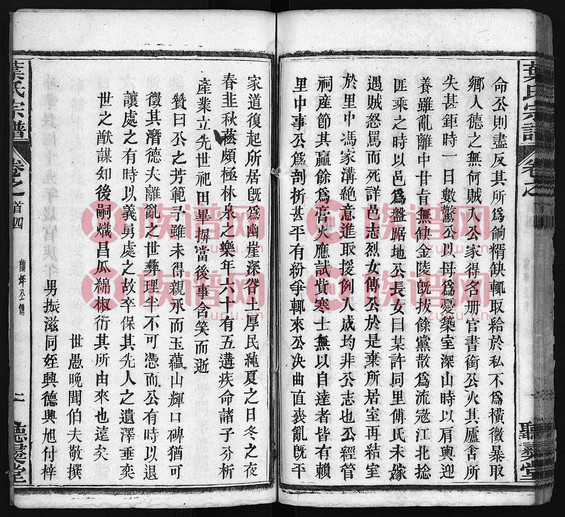 葉氏宗譜 卷之
聽彝堂
命公則盡反其所爲餉糈缺輒取給於私不爲橫徵暴取
鄉人德之無何賊入公家得名册官書銜公火其廬舍所
失甚鉅時一日數驚公以母爲憂築室深山時以肩輿迎
養雖亂離中甘旨無缺金陵旣拔餘黨散爲流寇江北捻
匪乘之時以邑爲盤踞地公長女曰某許同里傅氏未嫁
遇賊怒罵而死詳邑志烈女傳公於是棄所居室再結堂
於里中馮家溝絶意進取援例入成均非公志也歲久
祠産節其贏餘爲膏火應試貲寒士無以自達者皆有賴
里中事公爲剖析甚平有紛爭輒來公決曲直喪亂旣平
家道復起所居旣爲幽崖深谷土厚民純夏之日冬之夜
春韭秋菘頗極林泉之樂年六十有五遘疾命諸子分析
產業立先世祀田畢摒當後事含笑而逝
贊曰公之芳範予雖未得親承而玉蘊山輝口碑猶可
徵其潛德夫離亂之世彝理半不可憑而公有時以退
讓處之有時以義勇處之故卒保其先人之遺澤垂奕
世之猷謀如後嗣熾昌瓜綿椒衍其所由來也遠矣
世愚晚聞伯夫敬撰
男振滋同姪興德興旭付梓
葉氏宗譜 卷之首四
二 聽彝堂
族谱网